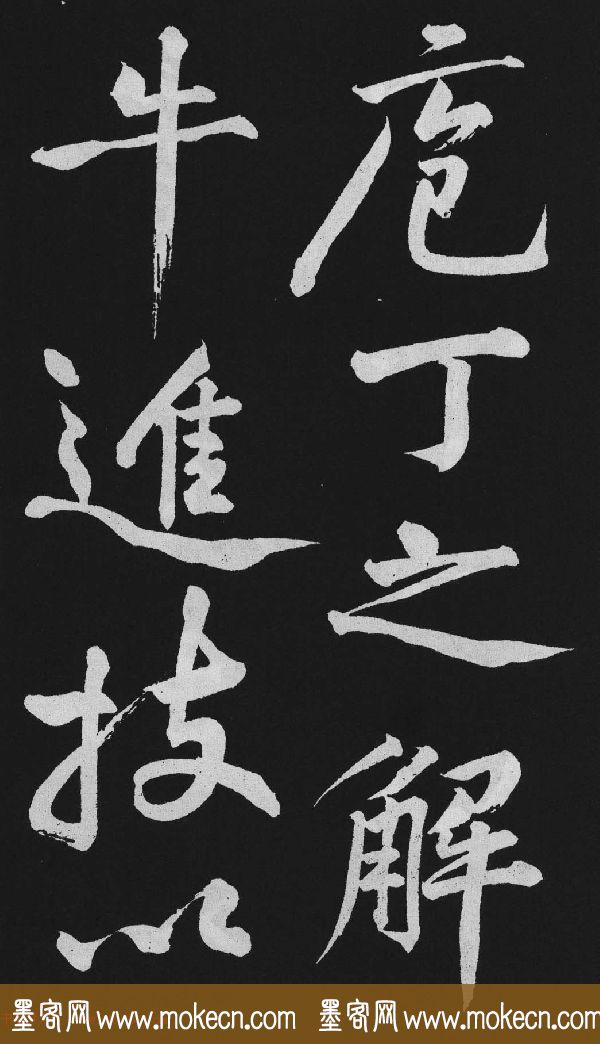 庖丁之解
牛進技以
墨客网 www.mokecn.com 墨客网 www.mokecn.com